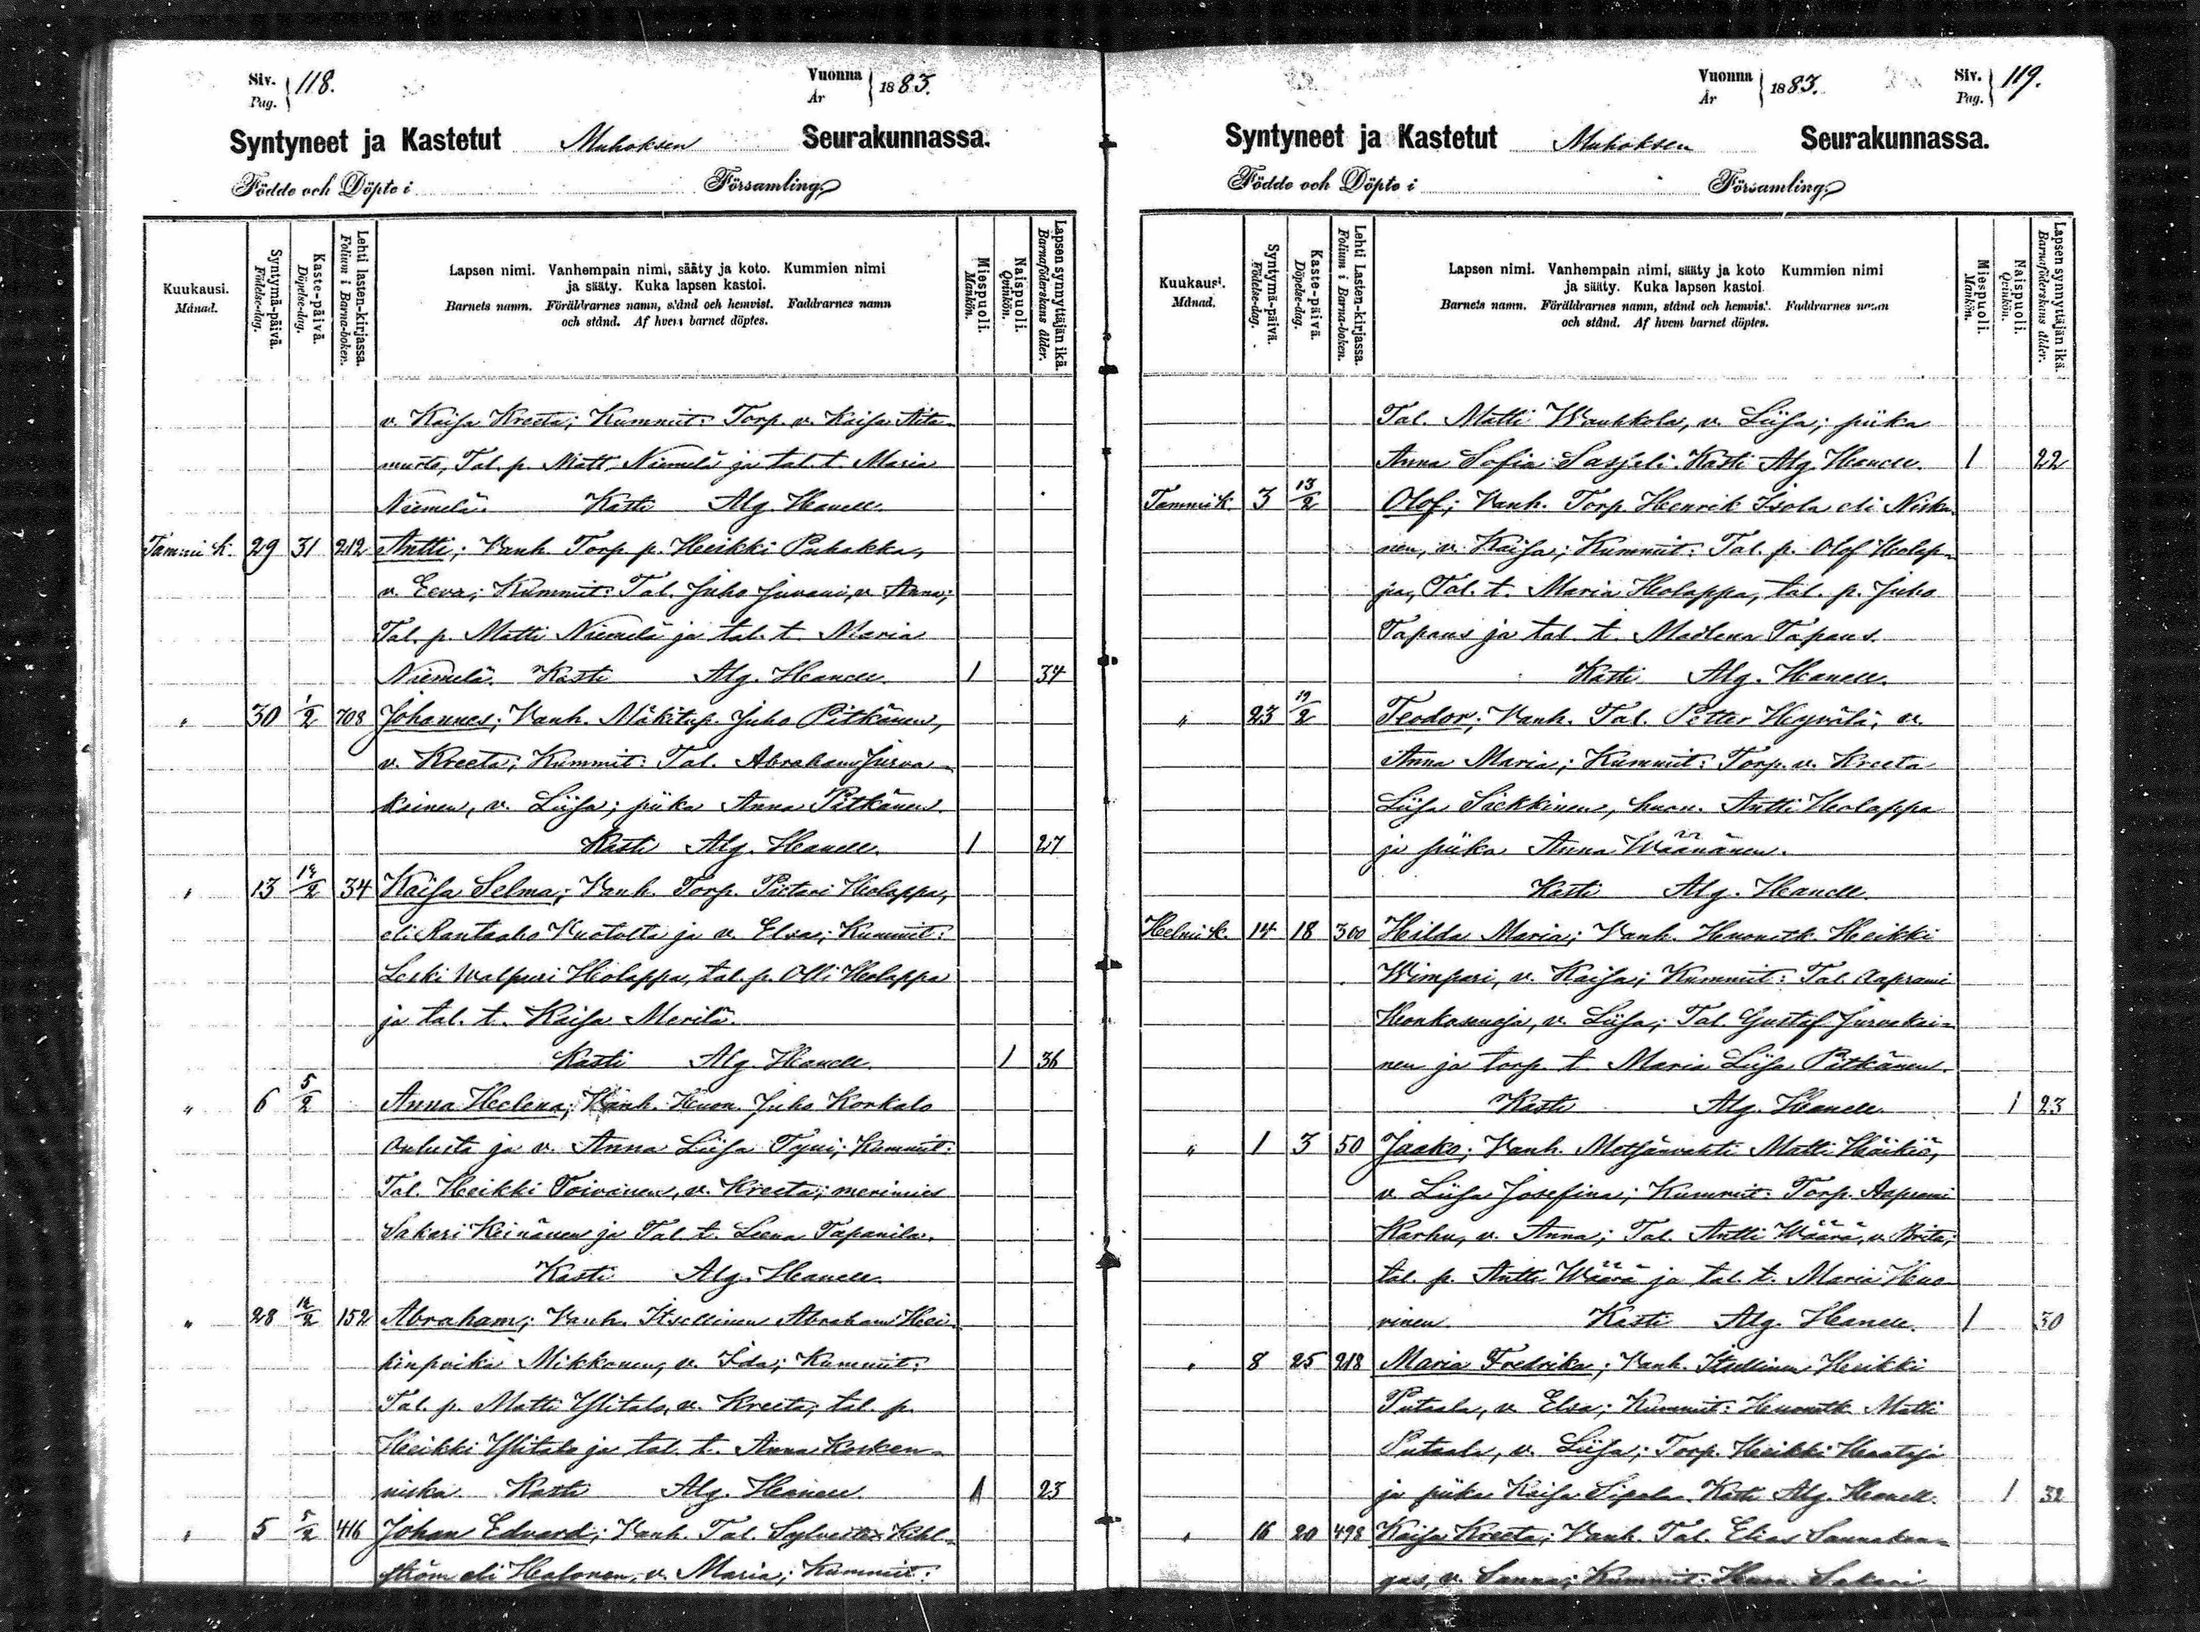 Siv. Pag. 118.
Vuonna År 1883.
Syntyneet ja Kastetut Muhoksen Seurakunnassa.
Födde och Döpte i Församling.
Kuukausi. Månad.
Syntymä-päivä. Födelse-dag.
Kaste-päivä. Döpelse-dag.
Lehti lasten-kirjassa. Folium i Barna-boken.
Lapsen nimi. Vanhempain nimi, sääty ja koto. Kummien nimi
ja sääty. Kuka lapsen kastoi.
Barnets namn. Föräldrarnes namn, stånd och hemvist. Faddrarnes namn
och stånd. Af hvem barnet döptes.
Miespuoli. Mankön.
Naispuoli. Qvinkön.
Lapsen synnyttäjän ikä. Barnaföderskans ålder.
v. Kaisa Kreeta; Kummit: Torp. v. Kaisa Aita-
murto, Tal. p. Matt. Niemelä ja tal. t. Maria
Niemelä. Kasti Alg. Hanell.
Tammi k. 29 31 212 Antti; Vanh. Torp p. Heikki Puhakka,
v. Eeva; Kummit: Tal. Juho Juvani, v. Anna;
Tal. p. Matti Niemelä ja tal. t. Maria
Niemelä. Kasti Alg. Hanell. 1 34
" 30 1/2 708 Johannes; Vanh. Mäkitup. Juho Pitkänen,
v. Kreeta; Kummit: Tal. Abraham Jurva-
keinen, v. Liisa; piika Anna Pitkänen.
Kasti Alg. Hanell. 1 27
" 13 /2 34 Kaisa Selma; Vanh. Torp. Pietari Holappa,
eli Rantaaho Vuotolta ja v. Elsa; Kummit:
Leski Walpuri Holappa, tal. p. Olli Holappa
ja tal. t. Kaisa Merilä.
Kasti Alg. Hanell. 1 36
" 6 5/2 Anna Helena; Vanh. Huon. Juho Korkalo
Oulusta ja v. Anna Liisa Tyni; Kummit:
Tal. Heikki Toivonen, v. Kreeta; merimies
Sakari Keinänen ja Tal. t. Leena Tapanila.
Kasti Alg. Hanell.
" 28 /2 152 Abraham; Vanh. Itsellinen Abraham Hei-
kinpoika Mikkonen, v. Ida; Kummit:
Tal. p. Matti Ylitalo, v. Kreeta; tal. p.
Heikki Ylitalo ja tal. t. Anna Kosken-
niska. Kasti Alg. Hanell. 1 23
" 5 5/2 416 Johan Edvard; Vanh. Tal. Sylvester Kihl-
ström eli Halonen, v. Maria; Kummit:
Vuonna År 1883.
Siv. Pag. 119.
Syntyneet ja Kastetut Muhoksen Seurakunnassa.
Födde och Döpte i Församling.
Kuukausi. Månad.
Syntymä-päivä. Födelse-dag.
Kaste-päivä. Döpelse-dag.
Lehti Lasten-kirjassa. Folium i Barna-boken.
Lapsen nimi. Vanhempain nimi, sääty ja koto Kummien nimi
ja sääty. Kuka lapsen kastoi.
Barnets namn. Föräldrarnes namn, stånd och hemvist. Faddrarnes namn
och stånd. Af hvem barnet döptes.
Miespuoli. Mankön.
Naispuoli. Qvinkön.
Lapsen synnyttäjän ikä. Barnaföderskans ålder.
Tal. Matti Wanhkola, v. Liisa; piika
Anna Sofia Sasseli. Kasti Alg. Hanell. 1 22
Tammik. 3 13/2 Olof; Vanh. Torp. Henrik Isola eli Niska-
nen, v. Kaisa; Kummit: Tal. p. Olof Holap-
pa, Tal. t. Maria Holappa, tal. p. Juho
Tapans ja tal. t. Madlena Tapans.
Kasti Alg. Hanell.
" 23 19/2 Teodor; Vanh. Tal. Petter Hyvälä, v.
Anna Maria; Kummit: Torp. v. Kreeta
Liisa Siekkinen, huon. Antti Holappa
ja piika Anna Wäänänen.
Kasti Alg. Hanell.
Helmik. 14 18 300 Hilda Maria; Vanh. Huonetk. Heikki
Wimpari, v. Kaisa; Kummit: Tal. Aaprami
Honkasuoja, v. Liisa; Tal. Gustaf Jurvakai-
nen ja torp. t. Maria Liisa Pitkänen.
Kasti Alg. Hanell. 1 23
" 1 3 50 Jaako; Vanh. Metsänvahti Matti Häikiö,
v. Liisa Josefina; Kummit: Torp. Aaprami
Karhu, v. Anna; Tal. Antti Wäärä, v. Brita;
tal. p. Antti Wäärä ja tal. t. Maria Huo-
vinen. Kasti Alg. Hanell. 1 30
" 8 25 218 Maria Fredrika; Vanh. Itsellinen Heikki
Putaala, v. Elsa; Kummit: Huonetk. Matti
Putaala, v. Liisa; Torp. Heikki Haataja
ja piika Kaisa Sipola. Kasti Alg. Hanell. 1 32
" 16 20 498 Kaisa Kreeta; Vanh. Tal. Elias Sannakan-
gas, v. Sanna; Kummit: Huon. Sakari